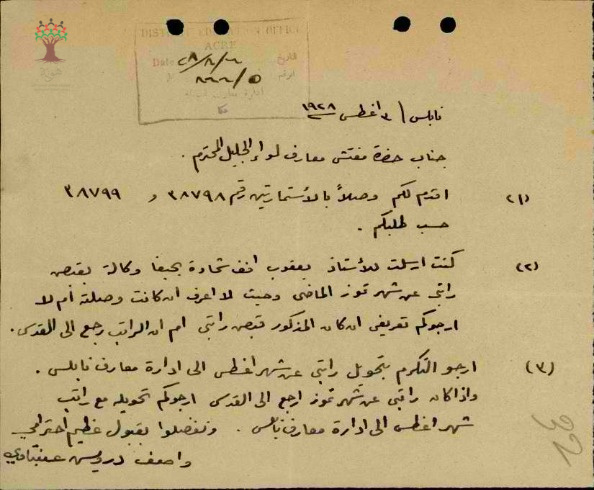 DISTRICT EDUCATION OFFICE
ACRE
Date
التاريخ
نابلس / ٣ اغطس ١٩٢٨
جناب حضرة مفتش معارف لواء الجليل المحترم .
(١) اقدم لكم وصلاً بالاستمارتين رقم ٣٨٧٩٨ و ٣٨٧٩٩
حسب طلبكم .
(٢) كنت ارسلت للأستاذ يعقوب شحادة بحيفا وكالة بقبض
راتبي عن شهر تموز الماضي وحيث لا اعرف ان كانت وصلته أم لا
ارجوكم تعريفي ان كان المذكور قبض راتبي ام ان الراتب رجع الى القدس .
(٣) ارجو التكرم بتحويل راتبي عن شهر اغطس الى ادارة معارف نابلس .
واذا كان راتبي عن شهر تموز ارجع الى القدس ارجوكم تحويله مع راتب
شهر اغطس الى ادارة معارف نابلس . وتفضلوا بقبول عظيم احترامي
واصف درويش